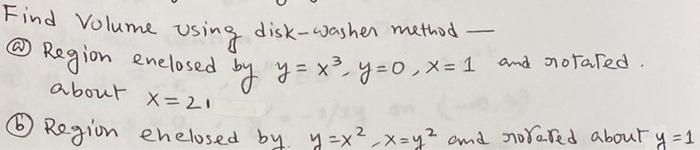 Find Volume using disk-washer method —
ⓐ Region enelosed by y = x³, y=0, x=1 and rotated.
about x=2.
ⓑ Region enelosed by y=x², x=y² and rotated about y=1